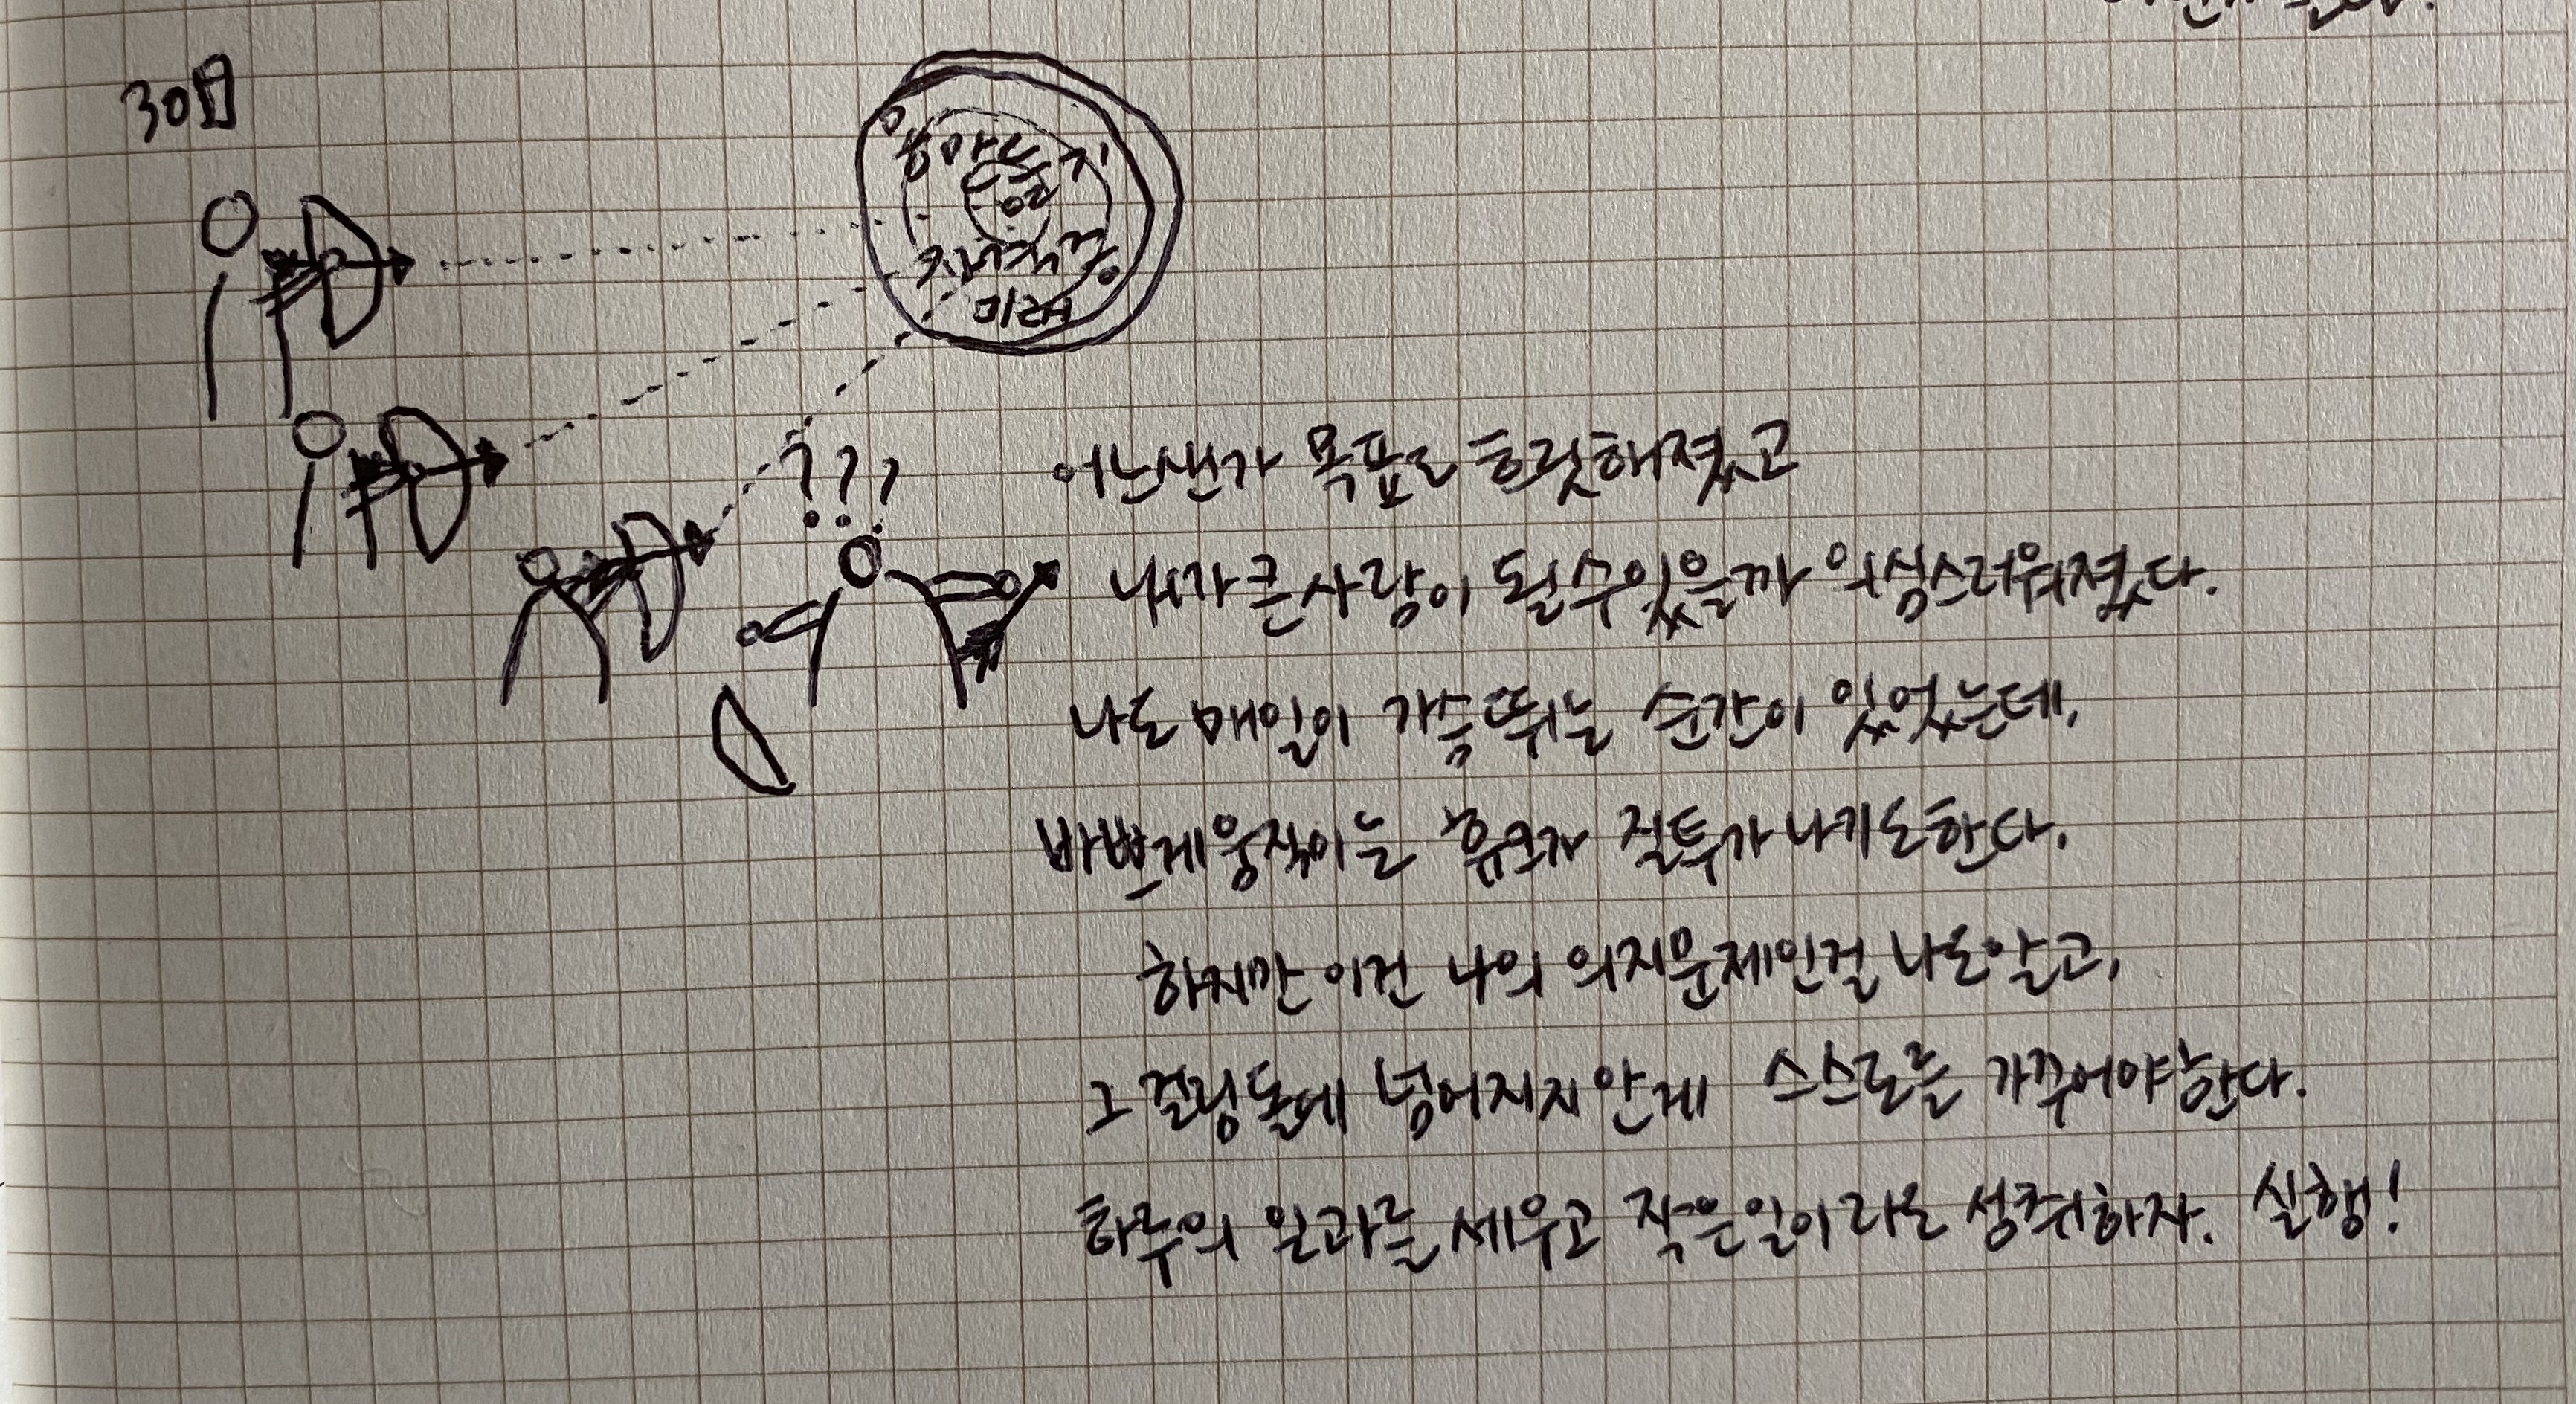 30일
미래
???
어난샌가 목표도 흐릿해졌고
내가 큰사람이 될수있을까 의심스러워졌다.
나도 매일이 가슴뛰는 순간이 있었는데,
바쁘게 움직이는 질투가 나기도한다.
하지만 이건 나의 의지문제인걸 나도알고,
그 걸링돌에 넘어지지안게 스스로를 가꾸어야한다.
하루의 일과를 세우고 작은일이라도 성취하자. 실행!